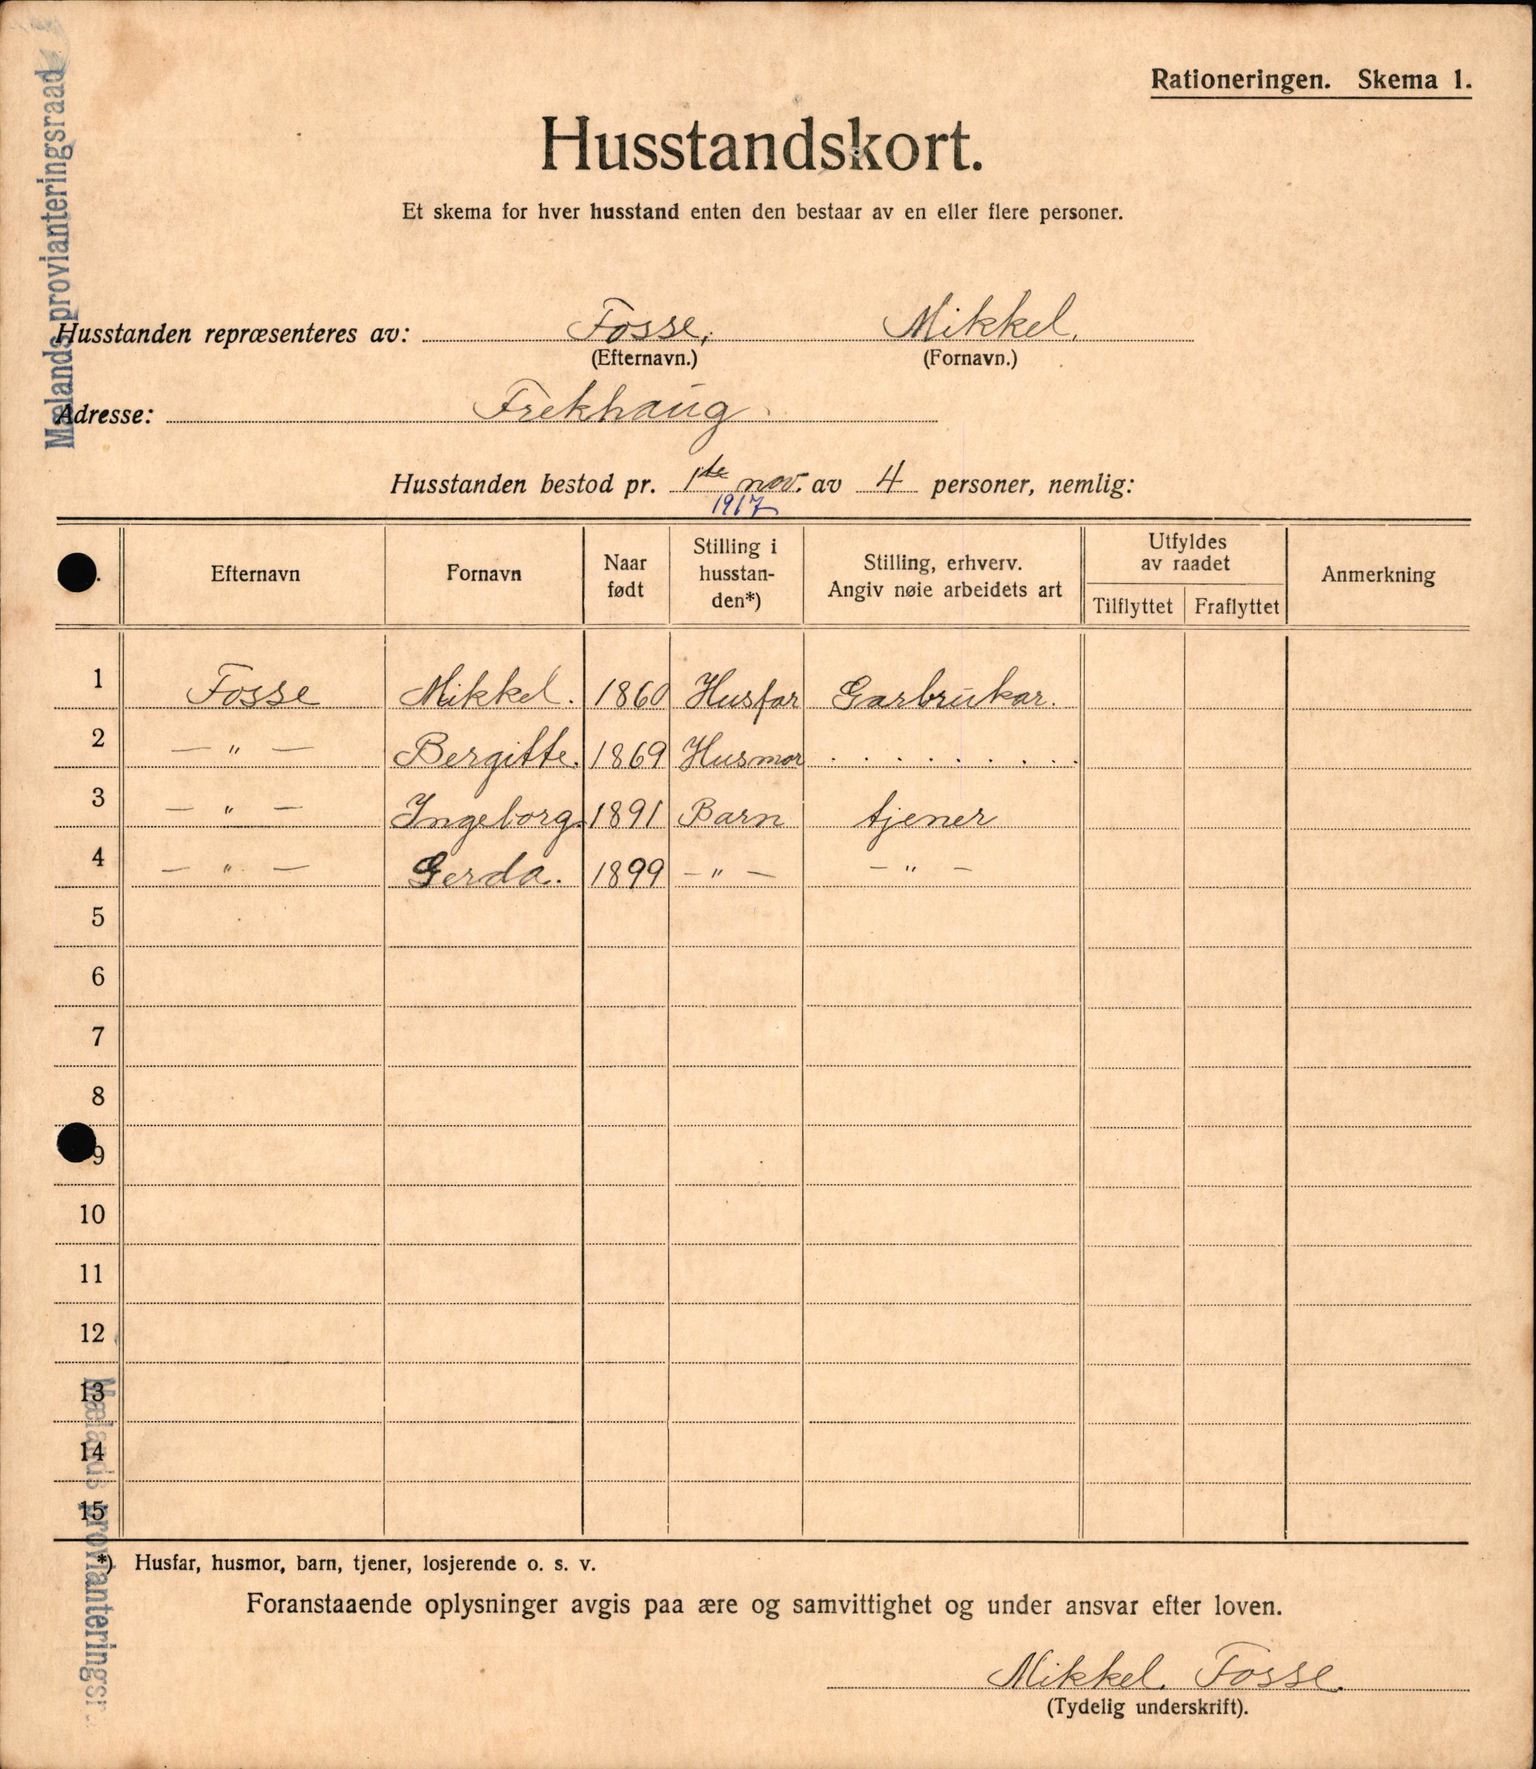 Mælands provianteringsraad
Rationeringen. Skema 1.
Husstandskort.
Et skema for hver husstand enten den bestaar av en eller flere personer.
Husstanden repræsenteres av: Fosse, Mikkel.
(Efternavn.) (Fornavn.)
Adresse: Frekhaug.
Husstanden bestod pr. 1ste nov. av 4 personer, nemlig:
1917
Efternavn Fornavn Naar født Stilling i husstan-den*) Stilling, erhverv. Angiv nøie arbeidets art Utfyldes av raadet Tilflyttet Fraflyttet Anmerkning
1 Fosse Mikkel. 1860 Husfar Garbrukar.
2 — " — Bergitte. 1869 Husmor . . . . . . . . .
3 — " — Ingeborg. 1891 Barn tjener
4 — " — Gerda. 1899 — " — — " —
5
6
7
8
9
10
11
12
13
14
15
*) Husfar, husmor, barn, tjener, losjerende o. s. v.
Foranstaaende oplysninger avgis paa ære og samvittighet og under ansvar efter loven.
Mikkel. Fosse.
(Tydelig underskrift).
Mælands provianteringsr